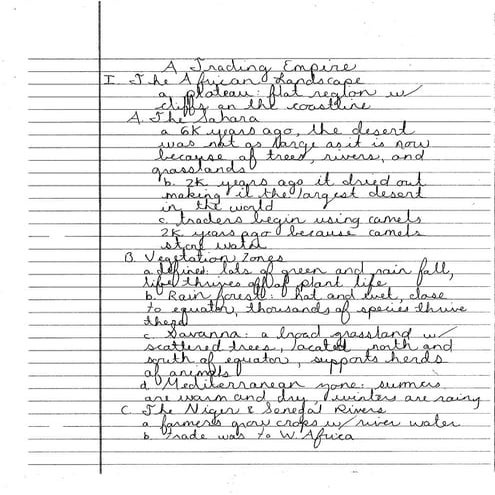 A Trading Empire
I. The African Landscape
a. plateau: flat region w/
cliffs on the coastline
A. The Sahara
a. 6K years ago, the desert
was not as large as it is now
because of trees, rivers, and
grasslands
b. 2K years ago it dried out
making it the largest desert
in the world
c. traders begin using camels
2K years ago because camels
store water
B. Vegetation Zones
a. defined: lots of green and rain fall,
life thrives off of plant life
b. Rain forest: hot and wet, close
to equator, thousands of species thrive
there
c. Savanna: a broad grassland w/
scattered trees, located north and
south of equator, supports herds
of animals
d. Mediterranean zone: summers
are warm and dry, winters are rainy
C. The Niger & Senegal Rivers
a. farmers grow crops w/ river water
b. trade was to W. Africa